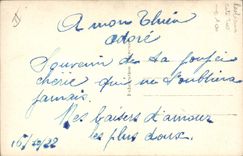 A mon Chéri
adoré
Souvenir de ta poupée
chérie qui ne t'oubliera
jamais.
Mes baisers d'amour
les plus doux.
16/10/22